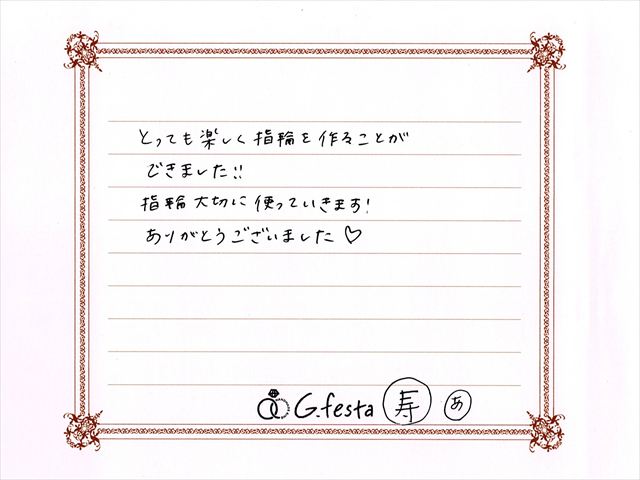 とっても楽しく指輪を作ることが
できました!!
指輪大切に使っていきます!
ありがとうございました♡
G.festa 寿 あ